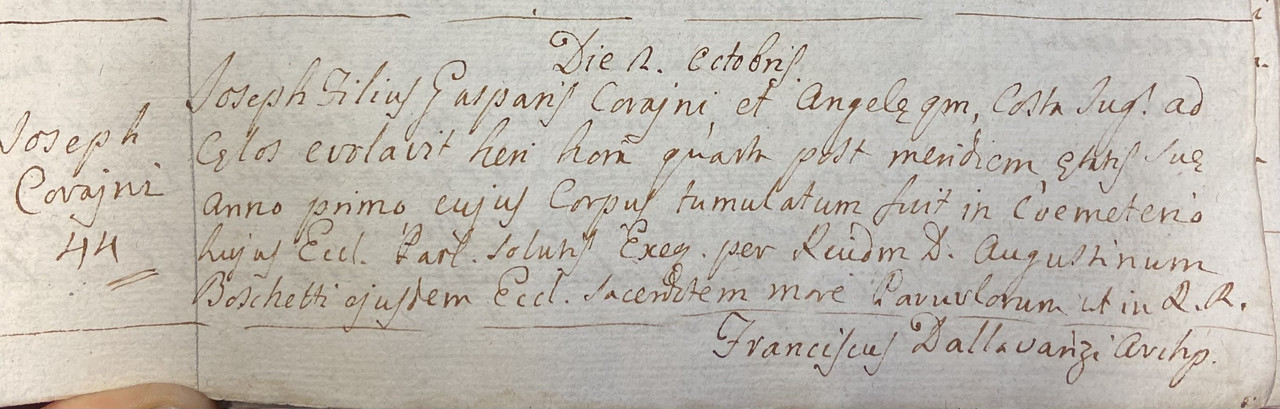 Die 2. Octobris
Joseph Filius Gasparis Covajni, et Angelę qm, Costa Jug: ad
Cęlos evolavit heri hora quarta post meridiem ętatis suę
Anno primo cujus Corpus tumulatum fuit in Coemeterio
hujus Eccl. Par. solutis Exeq. per Reudm D. Augustinum
Boschetti ejusdem Eccl. Sacerdotem more Parvulorum ut in R. R.
Franciscus Dallavanzi Archp.
Joseph
Covajni
44